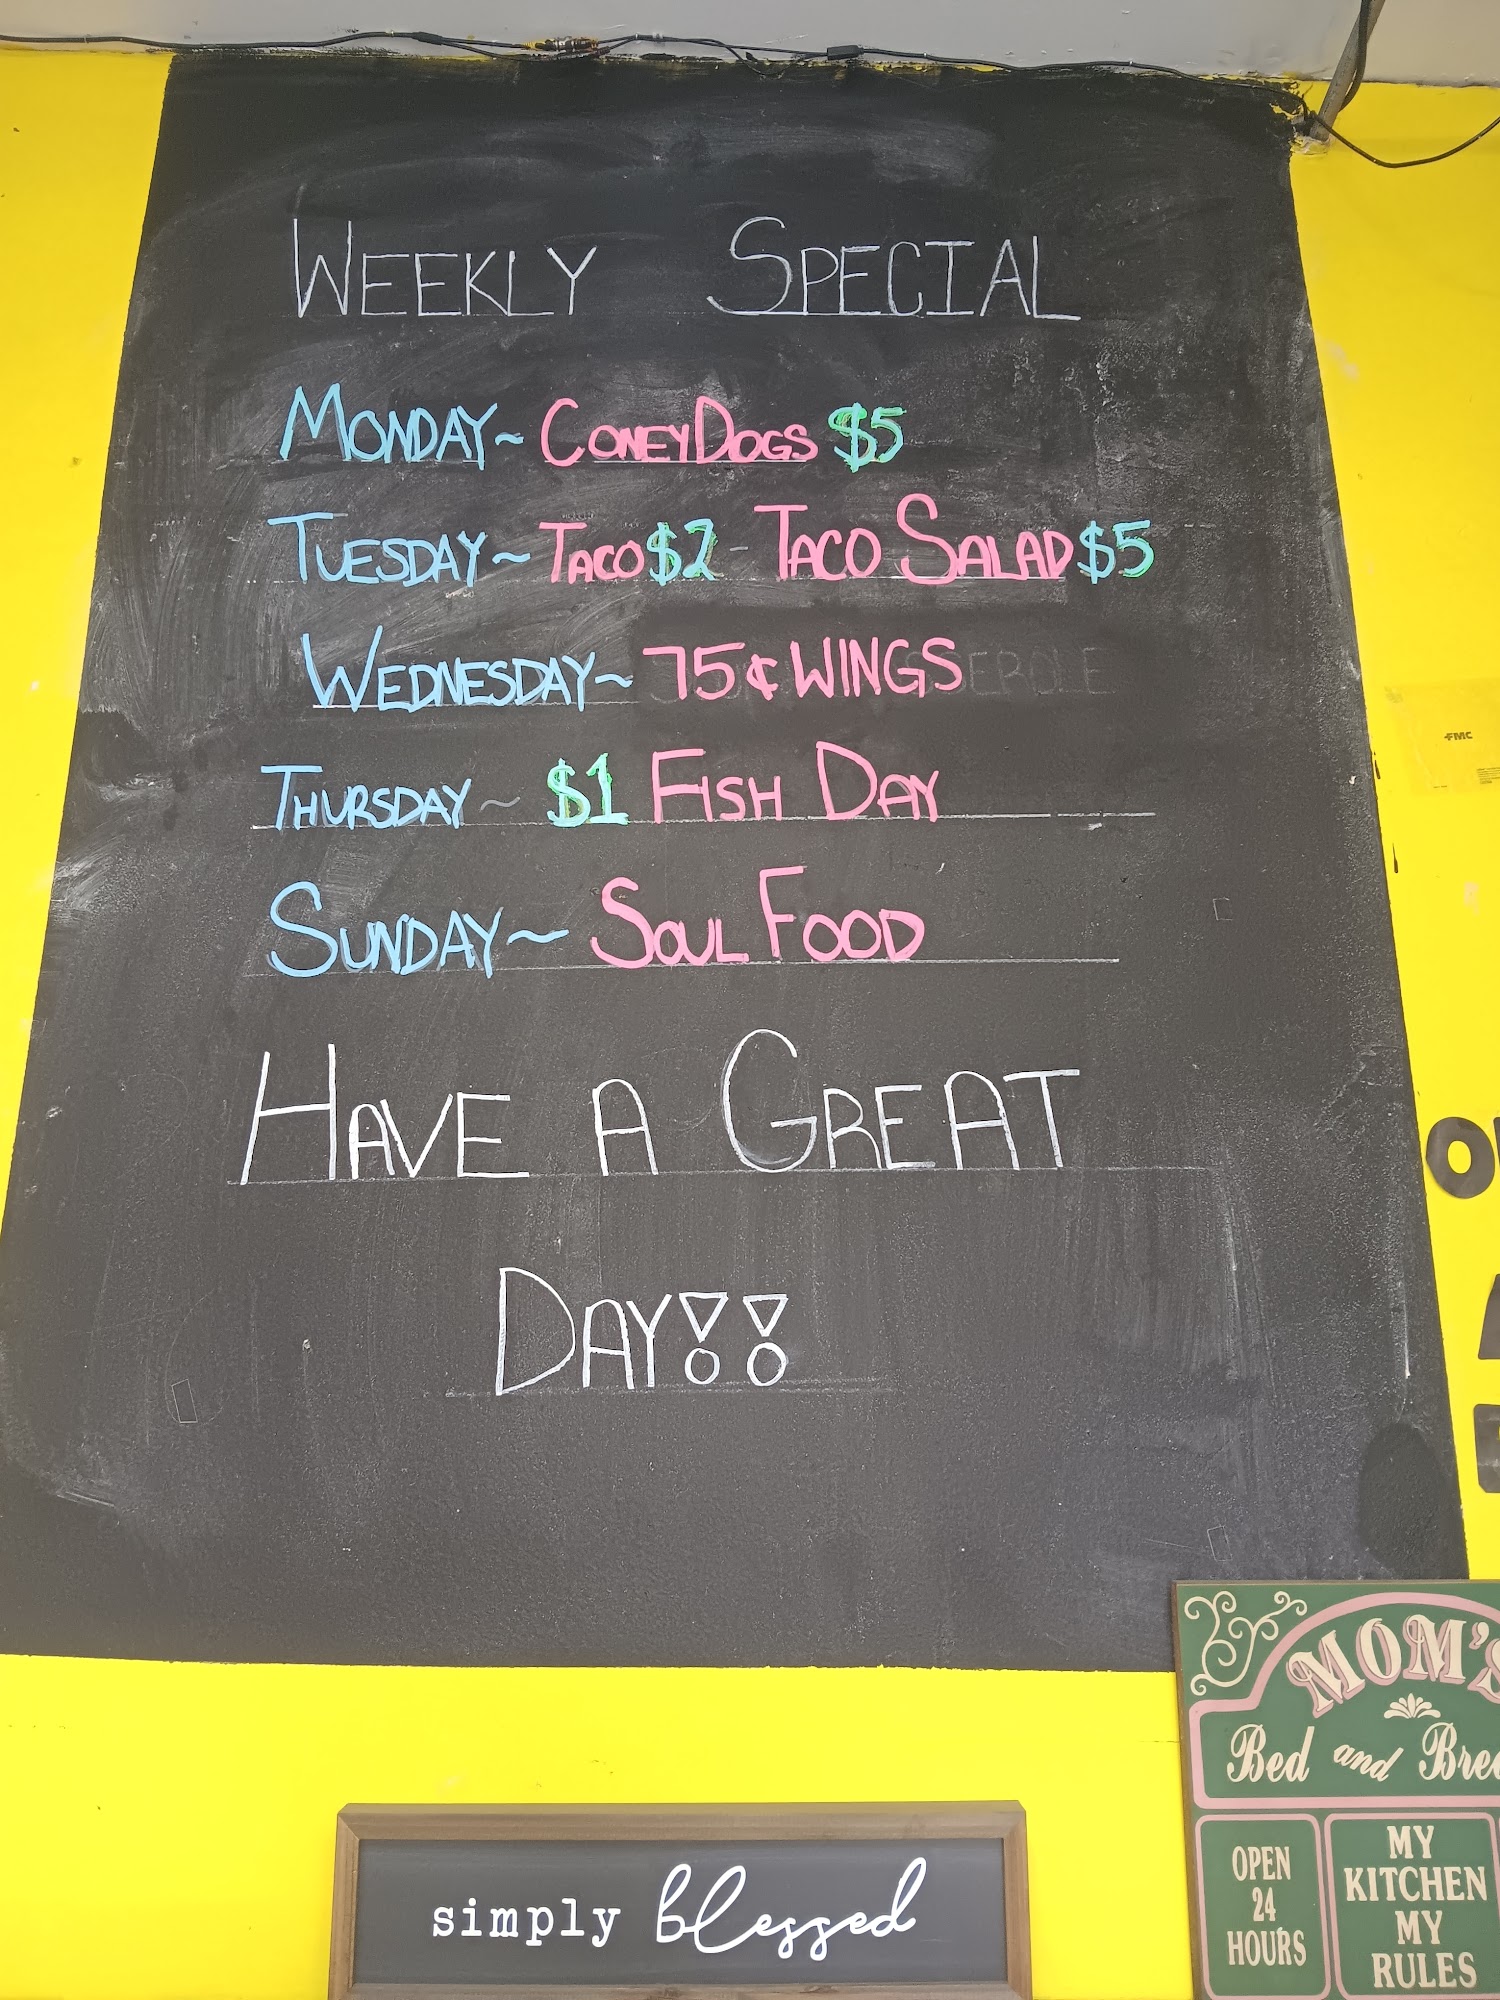 WEEKLY SPECIAL
MONDAY~ CONEY DOGS $5
TUESDAY~ TACO $2 - TACO SALAD $5
WEDNESDAY~ 75¢ WINGS
THURSDAY~ $1 FISH DAY
SUNDAY~ SOUL FOOD
HAVE A GREAT
DAY!!
FMC
simply blessed
MOM'S
Bed and Brea
OPEN
24
HOURS
MY
KITCHEN
MY
RULES